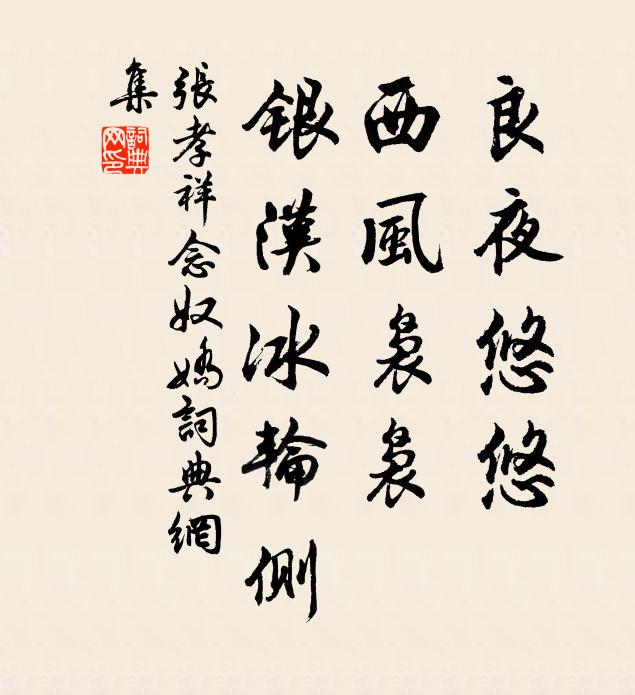 良夜悠悠
西風裊裊
銀漢冰輪側
張孝祥念奴嬌詞典網
集
詞典網印